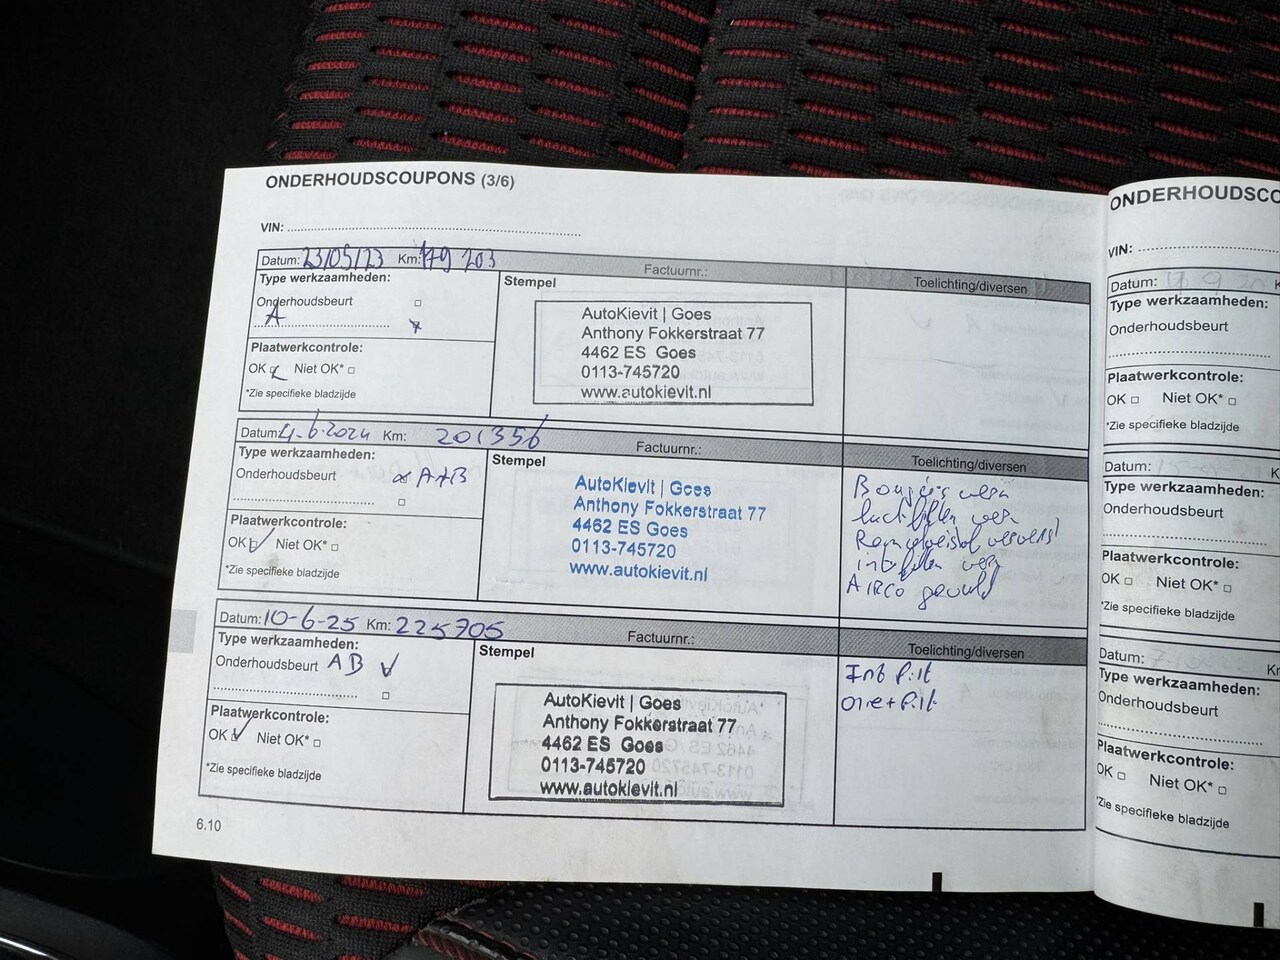 ONDERHOUDSCOUPONS (3/6)
VIN:
Datum: 23/05/23 Km: 179 203 Factuurnr.: Toelichting/diversen
Type werkzaamheden:
Stempel
Onderhoudsbeurt
A
Plaatwerkcontrole:
OK Niet OK*
*Zie specifieke bladzijde
AutoKievit | Goes
Anthony Fokkerstraat 77
4462 ES Goes
0113-745720
www.autokievit.nl
Datum: 4-6-2024 Km: 201356 Factuurnr.: Toelichting/diversen
Type werkzaamheden:
Stempel
Onderhoudsbeurt A+B
Plaatwerkcontrole:
OK Niet OK*
*Zie specifieke bladzijde
AutoKievit | Goes
Anthony Fokkerstraat 77
4462 ES Goes
0113-745720
www.autokievit.nl
Bougies verv
luchtfilter verv
Remvloeistof ververst
verv
AIRCO gevuld
Datum: 10-6-25 Km: 225705 Factuurnr.: Toelichting/diversen
Type werkzaamheden:
Stempel
Onderhoudsbeurt AB
Plaatwerkcontrole:
OK Niet OK*
*Zie specifieke bladzijde
AutoKievit | Goes
Anthony Fokkerstraat 77
4462 ES Goes
0113-745720
www.autokievit.nl
Int filt
6.10
ONDERHOUDSCO
VIN:
Datum:
Type werkzaamheden:
Onderhoudsbeurt
Plaatwerkcontrole:
OK Niet OK*
*Zie specifieke bladzijde
Datum:
Type werkzaamheden:
Onderhoudsbeurt
Plaatwerkcontrole:
OK Niet OK*
*Zie specifieke bladzijde
Datum:
Type werkzaamheden:
Onderhoudsbeurt
Plaatwerkcontrole:
OK Niet OK*
*Zie specifieke bladzijde